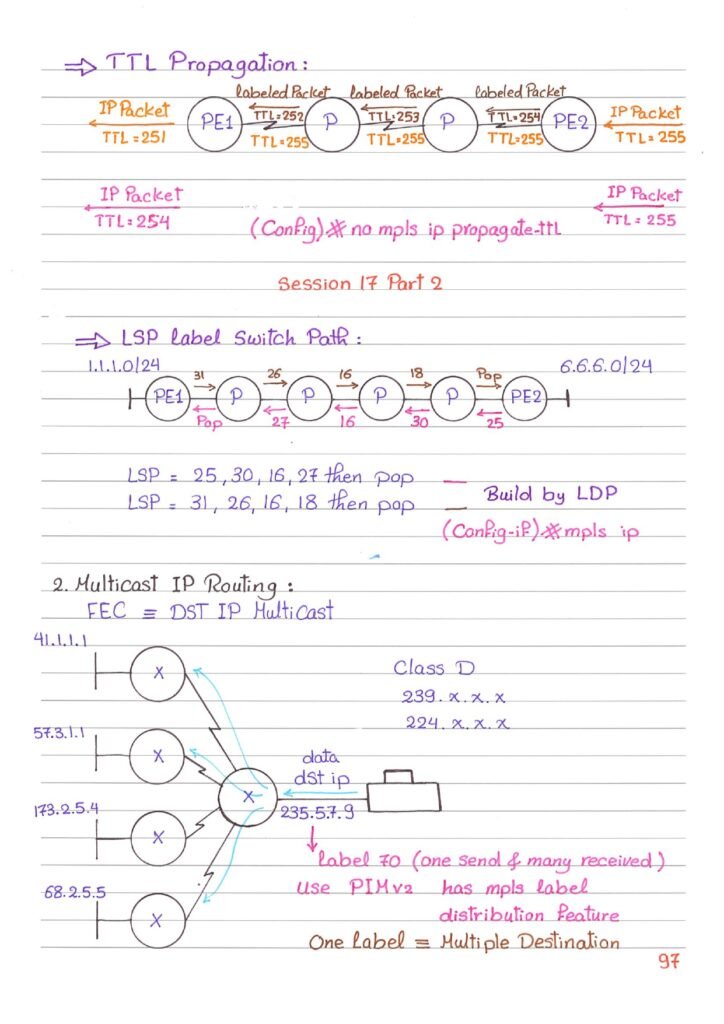 ⇒ TTL Propagation:
labeled Packet labeled Packet labeled Packet
IP Packet PE1 TTL=252 P TTL=253 P TTL=254 PE2 IP Packet
TTL=251 TTL=255 TTL=255 TTL=255 TTL=255
IP Packet IP Packet
TTL=254 TTL=255
(Config)# no mpls ip propagate-ttl
Session 17 Part 2
⇒ LSP label Switch Path:
1.1.1.0/24 6.6.6.0/24
31 26 16 18 Pop
PE1 P P P P PE2
Pop 27 16 30 25
LSP = 25, 30, 16, 27 then pop
LSP = 31, 26, 16, 18 then pop
Build by LDP
(Config-if)# mpls ip
2. Multicast IP Routing:
FEC ≡ DST IP MultiCast
41.1.1.1
X
Class D
239.x.x.x
224.x.x.x
57.3.1.1
X
data
dst ip
X
235.5.7.9
173.2.5.4
X
label 70 (one send & many received)
Use PIMv2 has mpls label
distribution feature
68.2.5.5
X
One Label ≡ Multiple Destination
97